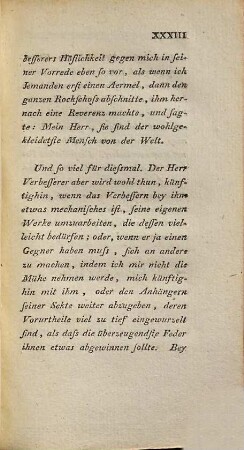 XXXIII
besserers Höflichkeit gegen mich in sei-
ner Vorrede eben so vor, als wenn ich
Jemanden erst einen Aermel, dann den
ganzen Rockschuss abschnitte, ihm her-
nach eine Reverenz machte, und sag-
te: Mein Herr, sie sind der wohlge-
kleidetste Mensch von der Welt.
Und so viel für diesmal. Der Herr
Verbesserer aber wird wohl thun, künf-
tighin, wenn das Verbessern bey ihm
etwas mechanisches ist, seine eigenen
Werke umzuarbeiten, die dessen viel-
leicht bedürfen; oder, wenn er ja einen
Gegner haben muss, sich an andere
zu machen, indem ich mir nicht die
Mühe nehmen werde, mich künftig-
hin mit ihm, oder den Anhängern
seiner Sekte weiter abzugeben, deren
Vorurtheile viel zu tief eingewurzelt
sind, als dass die überzeugendste Feder
ihnen etwas abgewinnen sollte. Bey